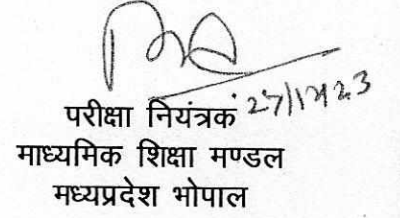 परीक्षा नियंत्रक
माध्यमिक शिक्षा मण्डल
मध्यप्रदेश भोपाल